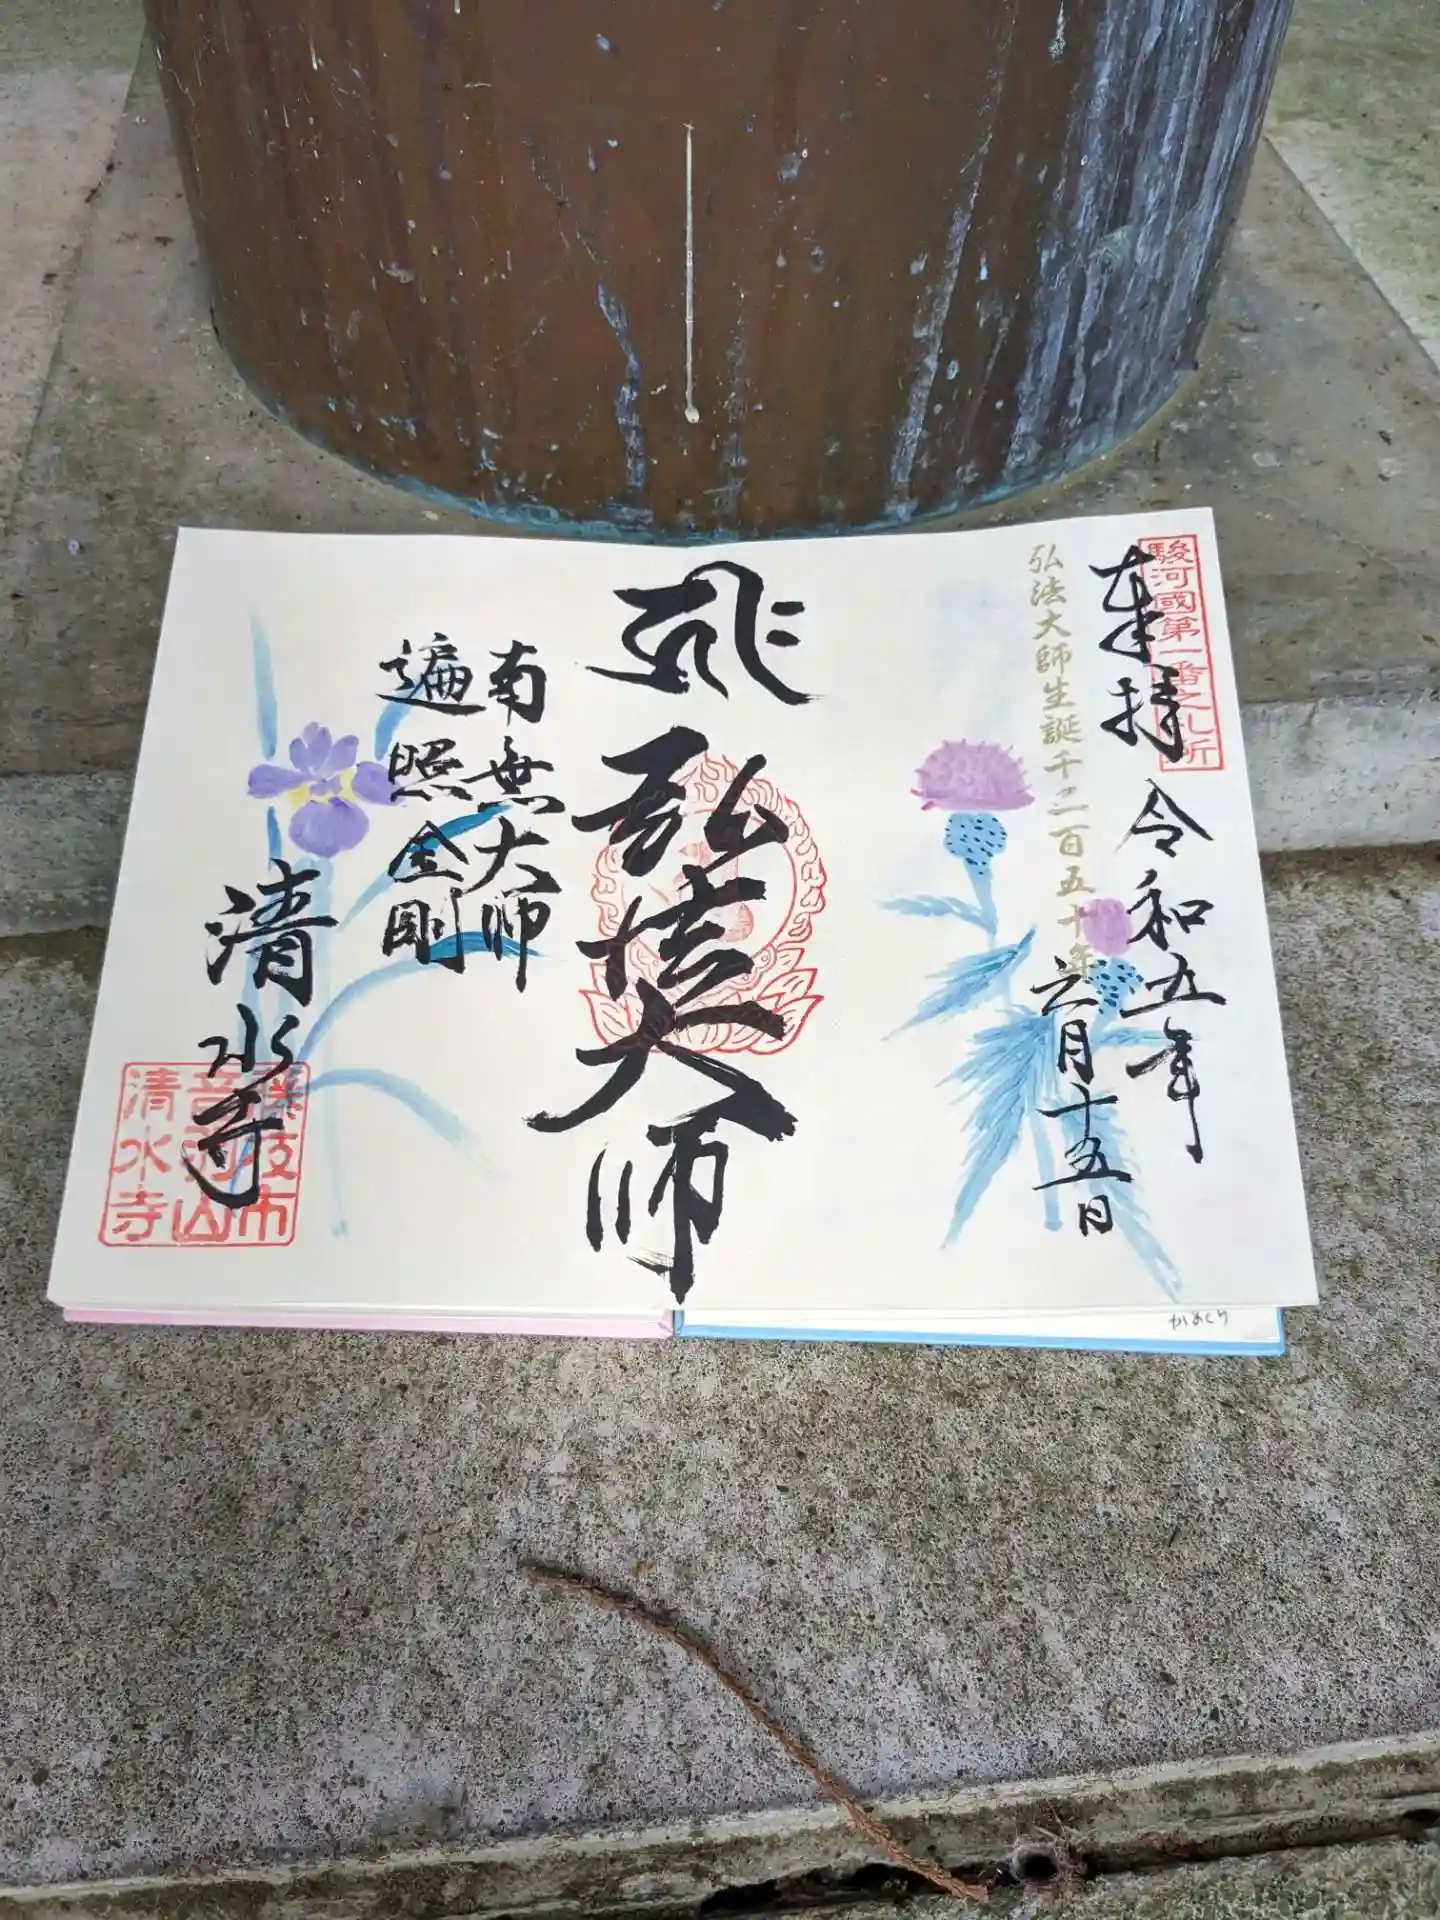 駿河國第一番之札所
奉拝
令和五年
六月十五日
弘法大師生誕千二百五十年
弘法大师
南無大师
遍照金剛
清水寺
藤枝市
音羽山
清水寺
かめくり